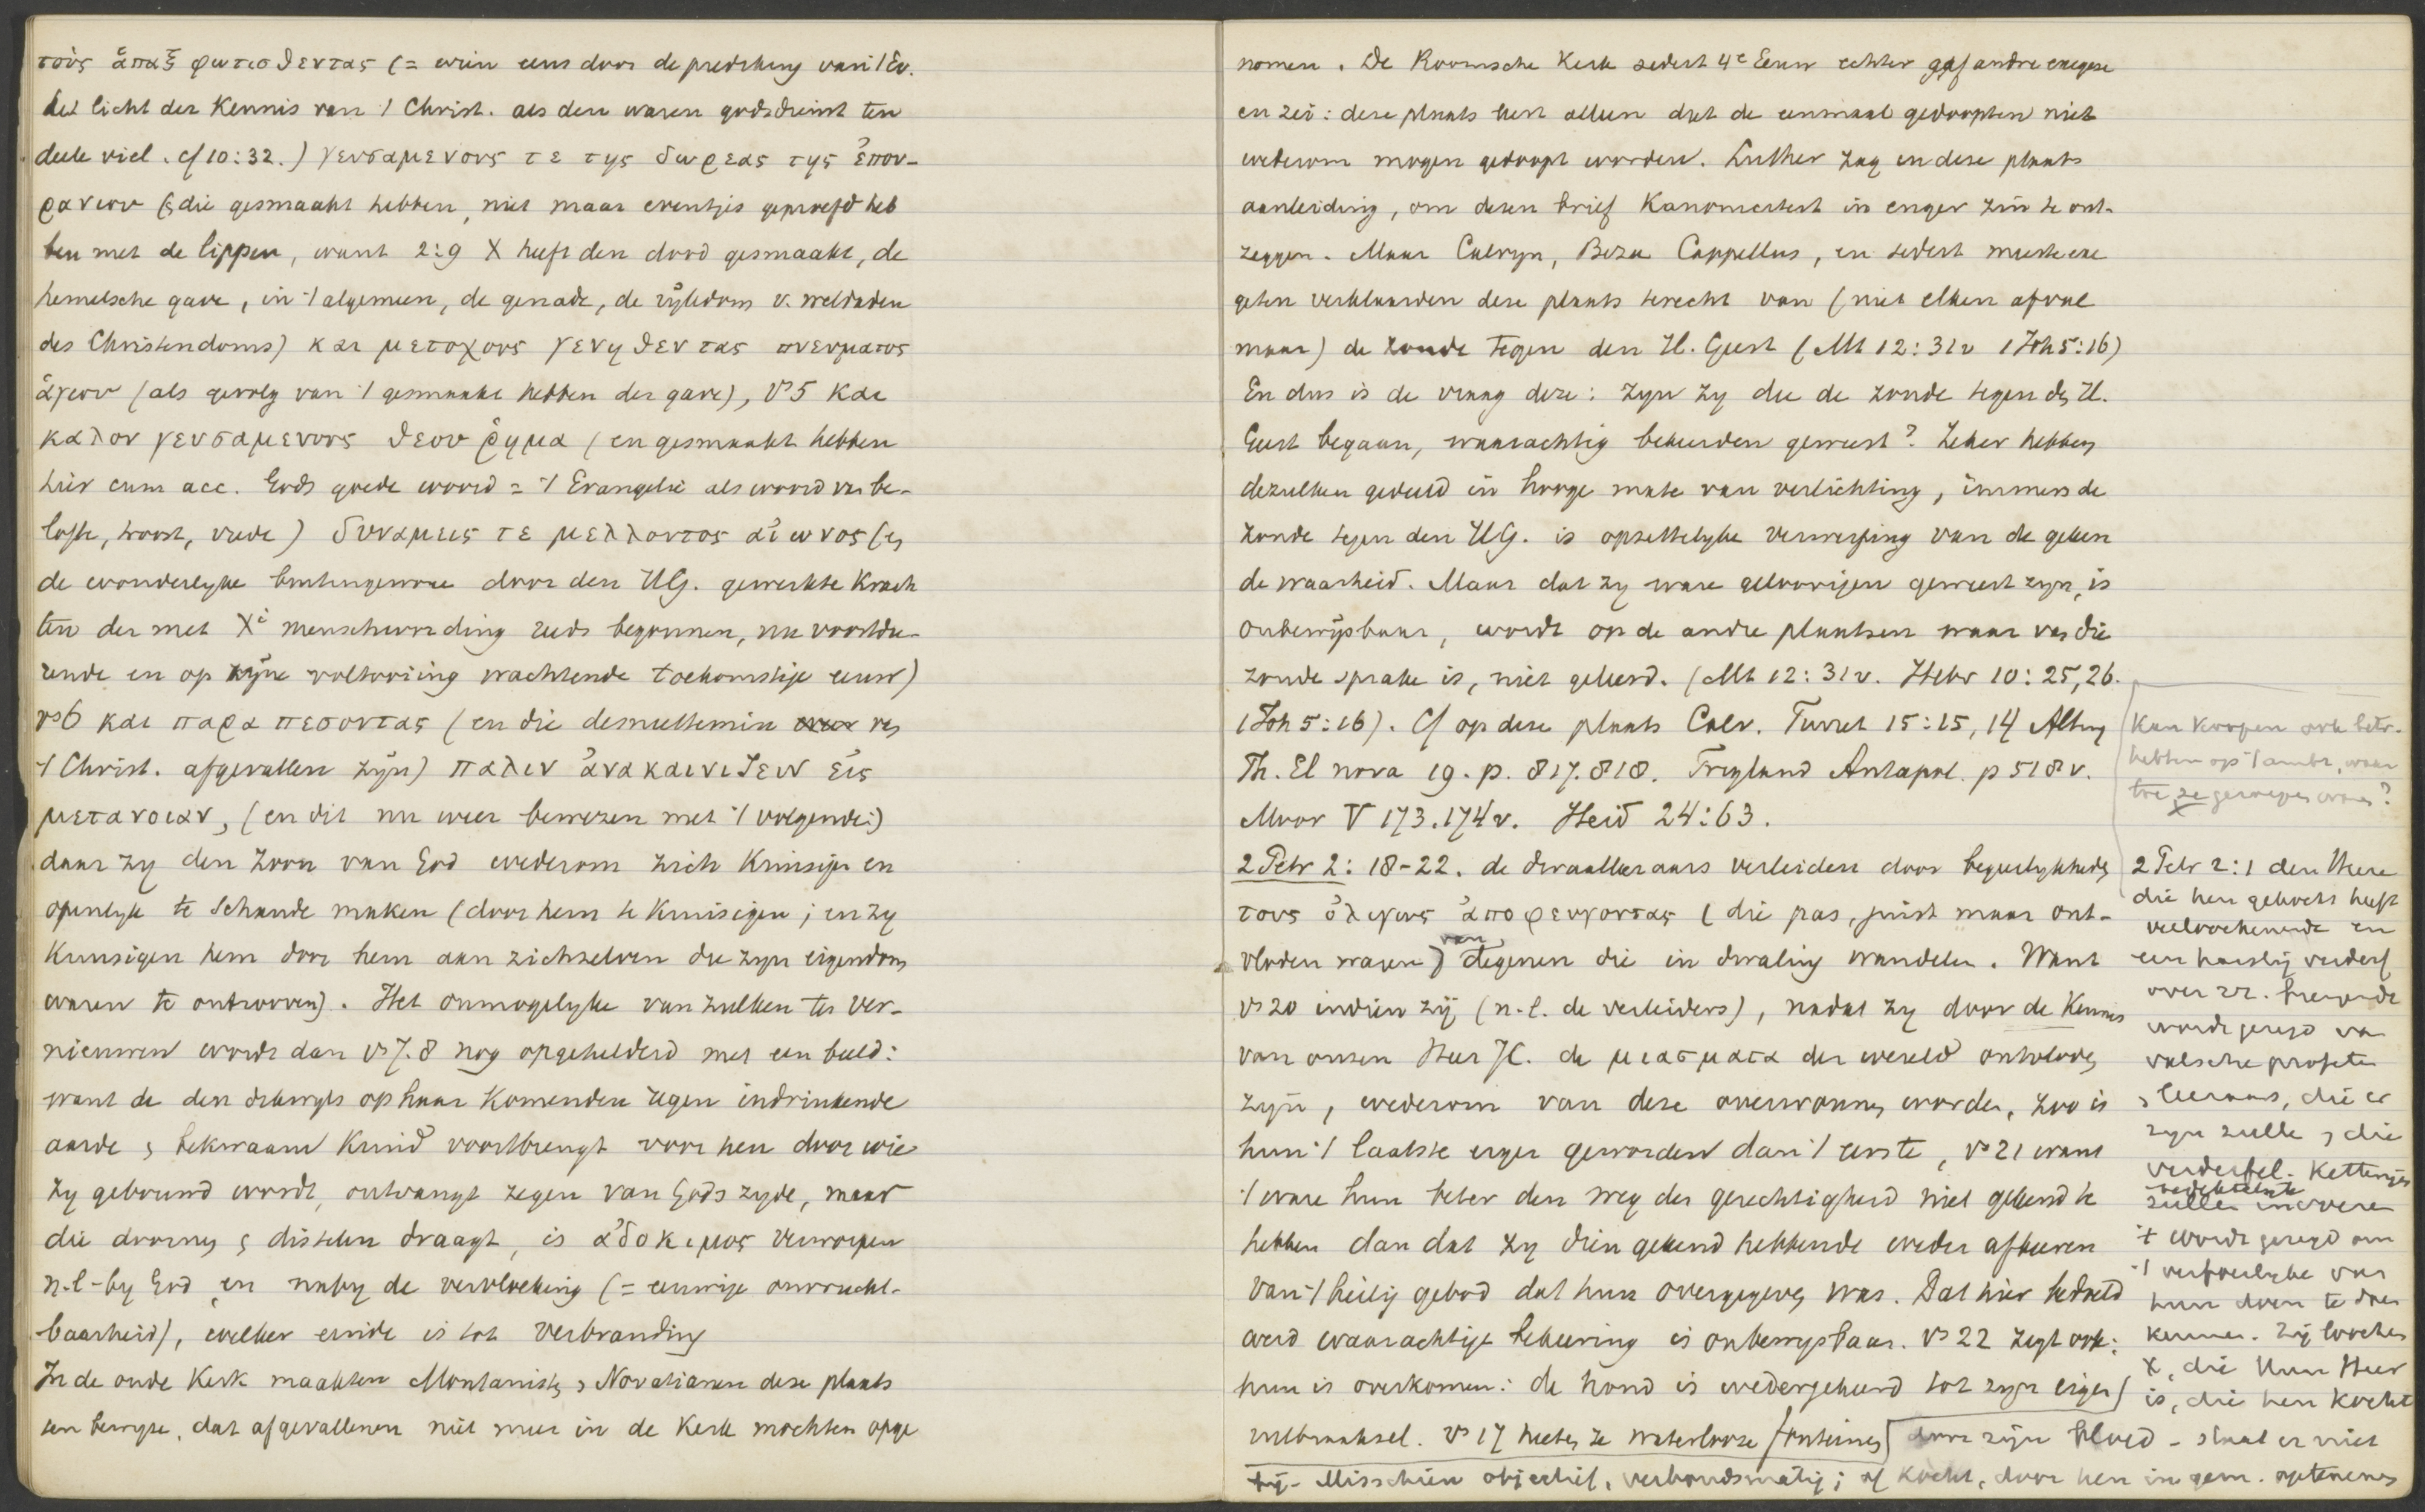 τοὺς ἅπαξ φωτισθεντας (= wien eens door de prediking van 't Ev.
het licht der Kennis van 't Christ. als den waren godsdienst ten
deele viel. cf 10:32.) γευσαμενους τε της δωρεας της ἐπου-
ρανιου (& die gesmaakt hebben, niet maar eventjes geproefd heb
ben met de lippen, want 2:9 X heeft den dood gesmaakt, de
hemelsche gave, in 't algemeen, de genade, de rijkdom v. weldaden
des Christendoms) και μετοχους γενηθεντας πνευματος
ἁγιου (als gevolg van 't gesmaakt hebben der gave), vs 5 και
καλον γευσαμενους θεου ῥημα (en gesmaakt hebben
hier cum acc. Gods goede woord = 't Evangelie als woord van be-
lofte, troost, vrede) δυναμεις τε μελλοντος αἰωνος (en
de wonderlyke buitengewone door den HG. gewerkte krach
ten der met Xi menschwording reeds begonnen, nu voortdu-
rende en op zijne voltooiing wachtende toekomstige eeuw)
vs 6 και παραπεσοντας (en die desniettemin van
't Christ. afgevallen zijn) παλιν ἀνακαινιζειν εἰς
μετανοιαν, (en dit nu weer bewezen met 't volgende:)
daar zy den Zoon van God wederom zich kruisigen en
openlyk te schande maken (door hem te kruisigen; en zy
kruisigen hem door hem aan zichzelven die zyn eigendom
waren te ontrooven). Het onmogelyke van zulken te ver-
nieuwen wordt dan vs 7.8 nog opgehelderd met een beeld:
want de den dikwyls op haar komenden regen indrinkende
aarde & bekwaam kruid voortbrengt voor hen door wie
zy gebouwd wordt, ontvangt zegen van Gods zyde, maar
die doornen & distelen draagt, is ἀδοκιμος verworpen
n.l. by God en naby de vervloeking (= eeuwige onvrucht-
baarheid), welker einde is tot verbranding
In de oude Kerk maakten Montanisten & Novatianen deze plaats
ten bewyze, dat afgevallenen niet meer in de Kerk mochten opge
nomen. De Roomsche Kerk sedert 4e Eeuw echter gaf andre exegese
en zei: deze plaats leert alleen dat de eenmaal gedoopten niet
wederom mogen gedoopt worden. Luther zag in deze plaats
aanleiding, om dezen brief Kanoniciteit in enger zin te ont-
zeggen. Maar Calvyn, Beza Cappellus, en sedert meeste exe
geten verklaarden deze plaats terecht van (niet elken afval
maar) de zonde tegen den H. Geest (Mt 12:31v 1 Joh 5:16)
En dus is de vraag deze: zyn zy die de zonde tegen den H.
Geest begaan, waarachtig bekeerden geweest? Zeker hebben
dezulken gedeeld in hooge mate van verlichting, immers de
zonde tegen den HG. is opzettelyke verwerping van de geken
de waarheid. Maar dat zy ware geloovigen geweest zyn, is
onbewijsbaar, wordt op de andre plaatsen waar van die
zonde sprake is, niet geleerd. (Mt 12:31v. Hebr 10:25,26.
1 Joh 5:16). Cf op deze plaats Calv. Turret 15:15,14 Alting
Th. El nova 19. p. 817.818. Trigland Antapol. p 518v.
Moor V 173.174v. Heid 24:63.
2 Petr 2: 18-22. de dwaalleeraars verleiden door begeerlykheden
τους ὀλιγως ἀποφευγοντας (die pas, juist maar ont-
vloden waren) van degenen die in dwaling wandelen. Want
vs 20 indien zij (n.l. de verleiders), nadat zy door de Kennis
van onzen Heer JC. de μιασματα der wereld ontvloden
zyn, wederom van deze overwonnen worden, zoo is
hun 't laatste erger geworden dan 't eerste, vs 21 want
't ware hun beter den weg der gerechtigheid niet gekend te
hebben dan dat zy dien gekend hebbende weder afkeeren
van 't heilig gebod dat hun overgegeven was. Dat hier bedoeld
werd waarachtige bekeering is onbewysbaar. vs 22 zegt ook:
hun is overkomen: de hond is wedergekeerd tot zyn eigen
uitbraaksel. vs 17 heeten ze waterlooze fonteinen
Kan koopen ook betr.
hebben op 't ambt, waar
toe ze geroepen waren?
2 Petr 2:1 den Heere
die hen gekocht heeft
verloochenende en
een haastig verderf
over zr. brengende
wordt gezegd van
valsche profeten
& leeraars, die er
zyn zullen & die
verderfel. Ketterijen
bedektelyk
zullen invoeren
't wordt gezegd om
't verfoeilyke van
hun doen te doen
kennen. Zij loochenen
X, die hun Heer
is, die hen kocht
door zijn bloed - staat er niet
bij - Misschien objectief, verbondsmatig; of kocht, door hen in gem. optenemen